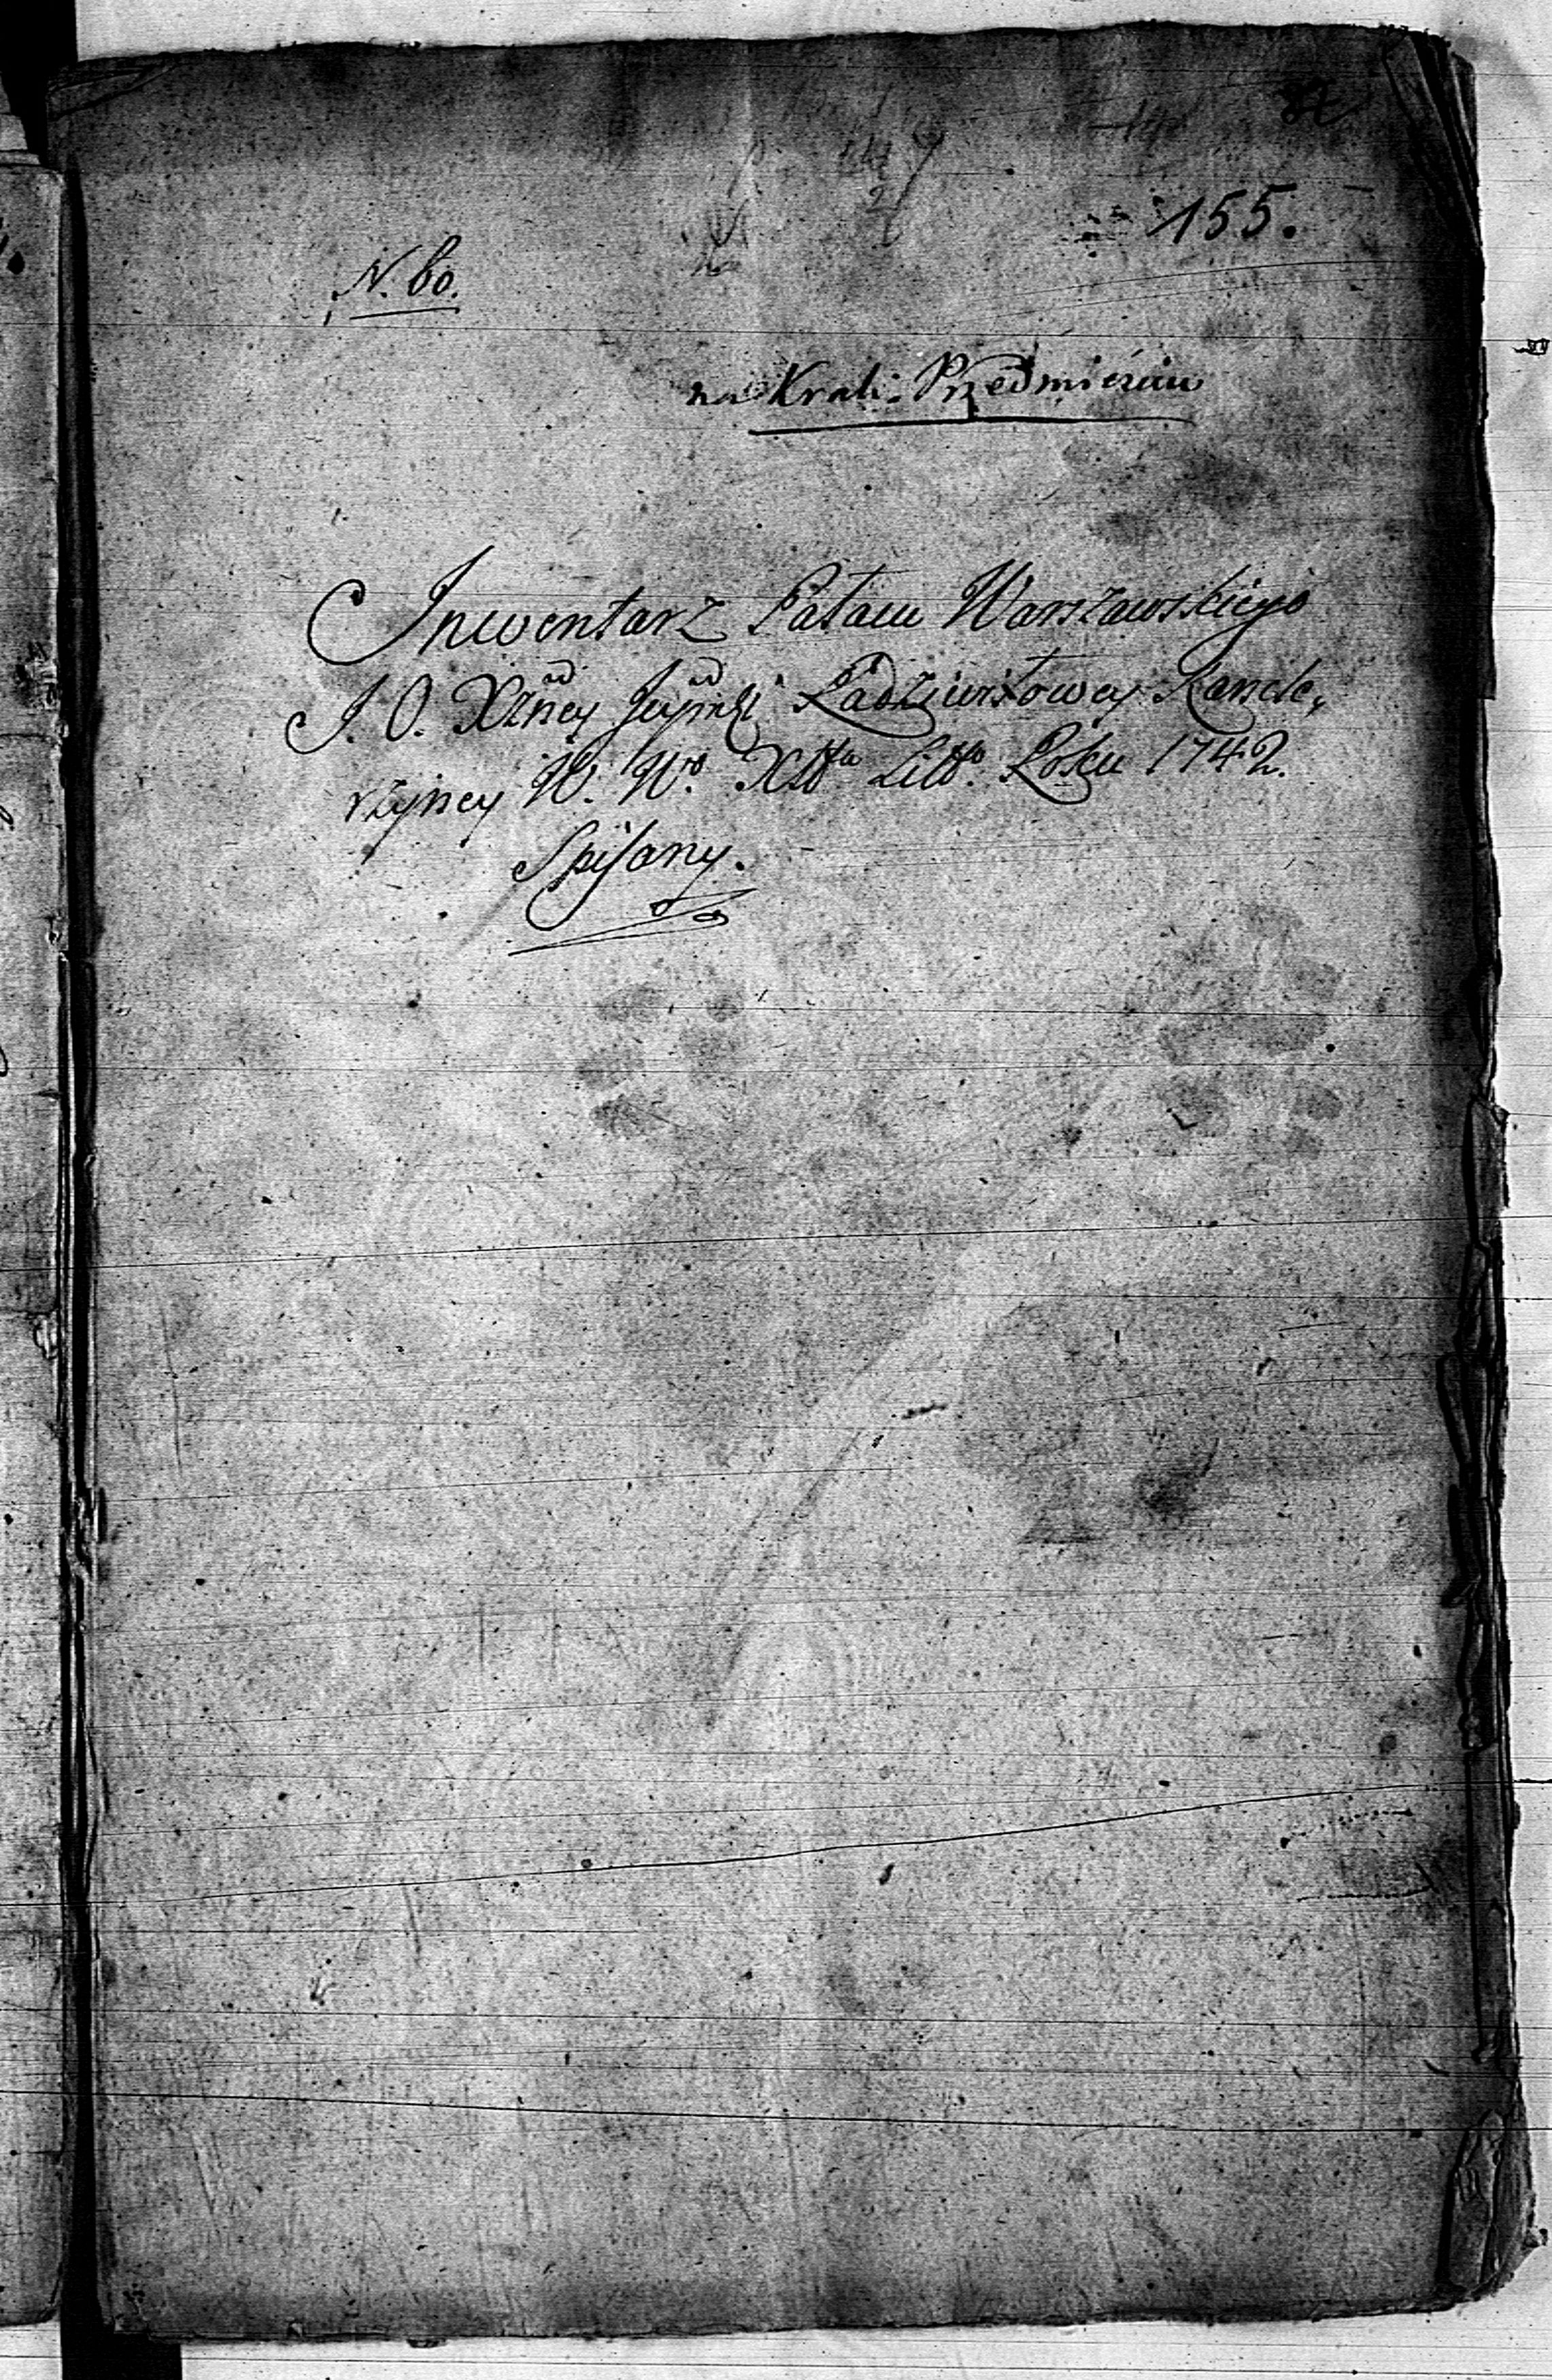 155.
N. 60.
na Krak: Przedmieściu
Inwentarz Pałacu Warszawskiego
J. O. Xżney Jeymći Radziwiłowey Kancle,
rzyney W. Wo. Xttwa Litto. Roku 1742.
Spisany.